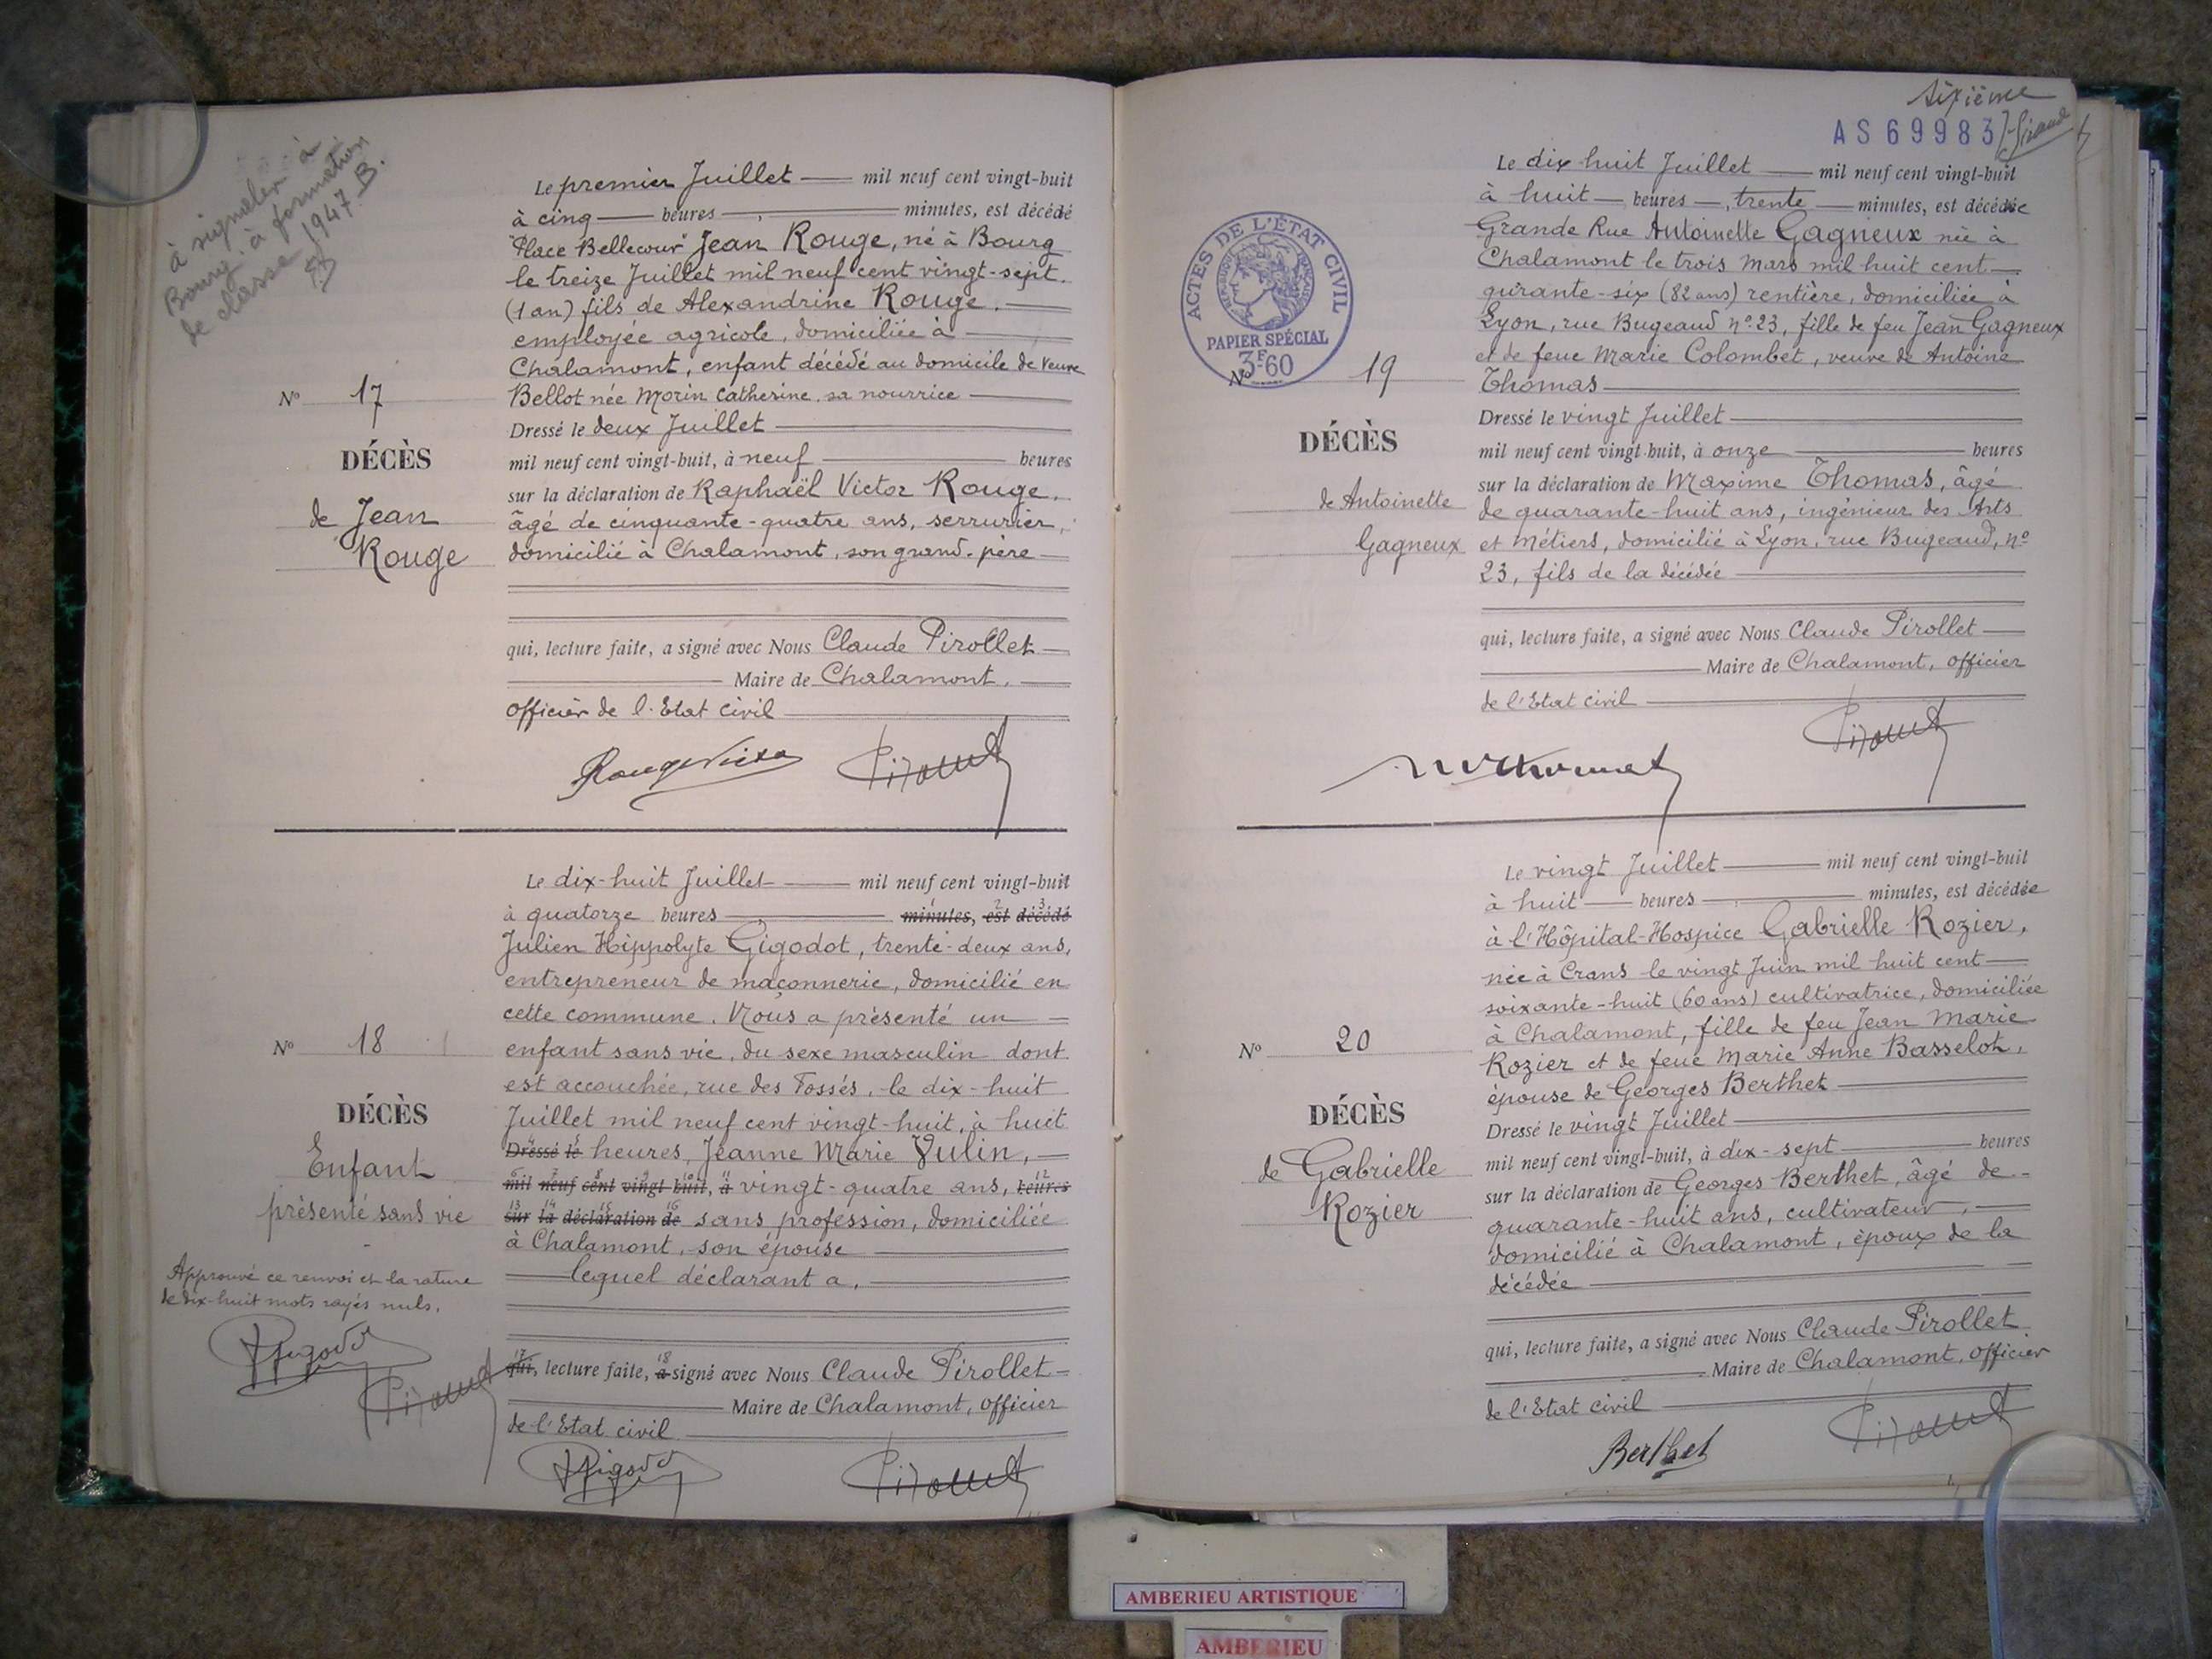 à signaler à
Bourg, à formation
de classe 1947. B.
Le premier Juillet mil neuf cent vingt-huit
à cinq heures minutes, est décédé
"Place Bellecour" Jean Rouge, né à Bourg
le treize Juillet mil neuf cent vingt-sept.
(1 an) fils de Alexandrine Rouge.
employée agricole, domiciliée à
Chalamont, enfant décédé au domicile de Veuve
Bellot née Morin Catherine, sa nourrice
Dressé le deux Juillet
mil neuf cent vingt-huit, à neuf heures
sur la déclaration de Raphaël Victor Rouge,
âgé de cinquante-quatre ans, serrurier,
domicilié à Chalamont, son grand-père
qui, lecture faite, a signé avec Nous Claude Pirollet
Maire de Chalamont,
officier de l'Etat civil
N° 17
DÉCÈS
de Jean
Rouge
Le dix-huit Juillet mil neuf cent vingt-huit
à quatorze heures minutes, est décédé
Julien Hippolyte Gigodot, trente-deux ans,
entrepreneur de maçonnerie, domicilié en
cette commune. Nous a présenté un
enfant sans vie, du sexe masculin dont
est accouchée, rue des Fossés, le dix-huit
Juillet mil neuf cent vingt-huit, à huit
Dressé le heures, Jeanne Marie Vulin,
mil neuf cent vingt huit, à vingt-quatre ans, heures
sur la déclaration de sans profession, domiciliée
à Chalamont, son épouse
lequel déclarant a,
qui, lecture faite, a signé avec Nous Claude Pirollet
Maire de Chalamont, officier
de l'Etat civil
N° 18
DÉCÈS
Enfant
présenté sans vie
Approuvé ce renvoi et la rature
de dix-huit mots rayés nuls.
sixième
AS69983
ACTES DE L'ÉTAT CIVIL
RÉPUBLIQUE FRANÇAISE
PAPIER SPÉCIAL
3F60
Le dix-huit Juillet mil neuf cent vingt-huit
à huit heures, trente minutes, est décédée
Grande Rue Antoinette Gagneux née à
Chalamont le trois Mars mil huit cent
qurante-six (82 ans) rentière, domiciliée à
Lyon, rue Bugeaud n° 23, fille de feu Jean Gagneux
et de feue Marie Colombet, veuve de Antoine
Thomas
Dressé le vingt Juillet
mil neuf cent vingt-huit, à onze heures
sur la déclaration de Maxime Thomas, âgé
de quarante-huit ans, ingénieur des Arts
et Métiers, domicilié à Lyon, rue Bugeaud, n°
23, fils de la décédée
qui, lecture faite, a signé avec Nous Claude Pirollet
Maire de Chalamont, officier
de l'Etat civil
N° 19
DÉCÈS
de Antoinette
Gagneux
Le vingt Juillet mil neuf cent vingt-huit
à huit heures minutes, est décédée
à l'Hôpital-Hospice Gabrielle Rozier,
née à Crans le vingt Juin mil huit cent
soixante-huit (60 ans) cultivatrice, domiciliée
à Chalamont, fille de feu Jean Marie
Rozier et de feue Marie Anne Basselot,
épouse de Georges Berthet
Dressé le vingt Juillet
mil neuf cent vingt-huit, à dix-sept heures
sur la déclaration de Georges Berthet, âgé de
quarante-huit ans, cultivateur,
domicilié à Chalamont, époux de la
décédée
qui, lecture faite, a signé avec Nous Claude Pirollet
Maire de Chalamont, officier
de l'Etat civil
Berthet
N° 20
DÉCÈS
de Gabrielle
Rozier
AMBERIEU ARTISTIQUE
AMBERIEU